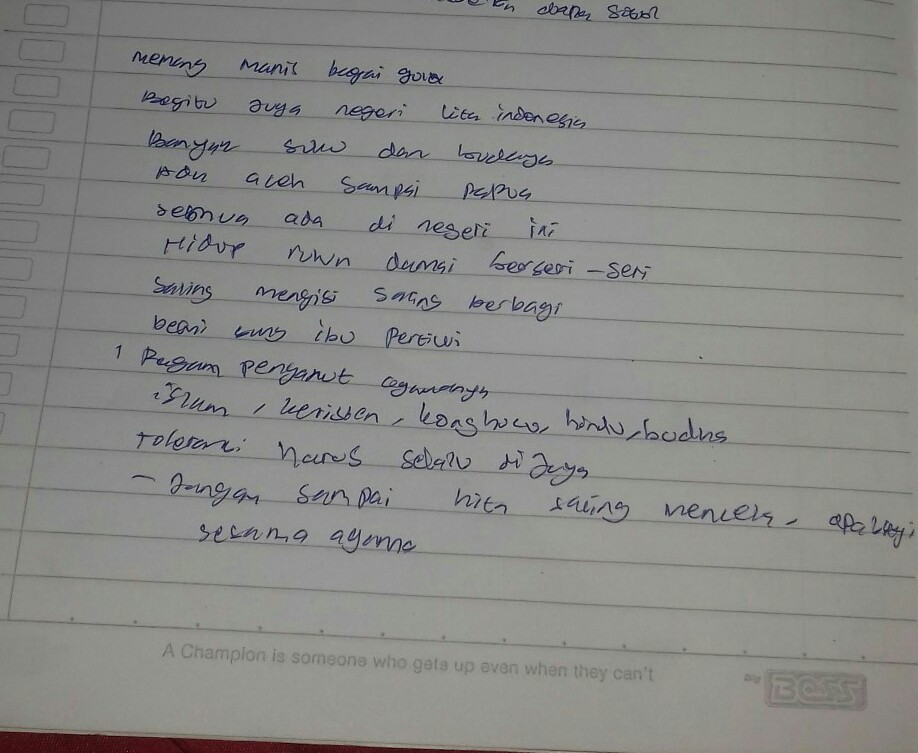 memang manis bagai gula
Begitu Juga negeri kita indonesia
Banyak suku dan budaya
Ada aceh sampai papua
semua ada di negeri ini
Hidup rukun damai berseri - seri
Saling mengisi saling berbagi
ibu Pertiwi
Ragam penganut agamanya
islam, keristen, konghucu, hindu, budha
toleransi harus selalu di Jaga
- Jangan sampai kita saling mencela, apalagi
sesama agama
A Champion is someone who gets up even when they can't
by BOSS